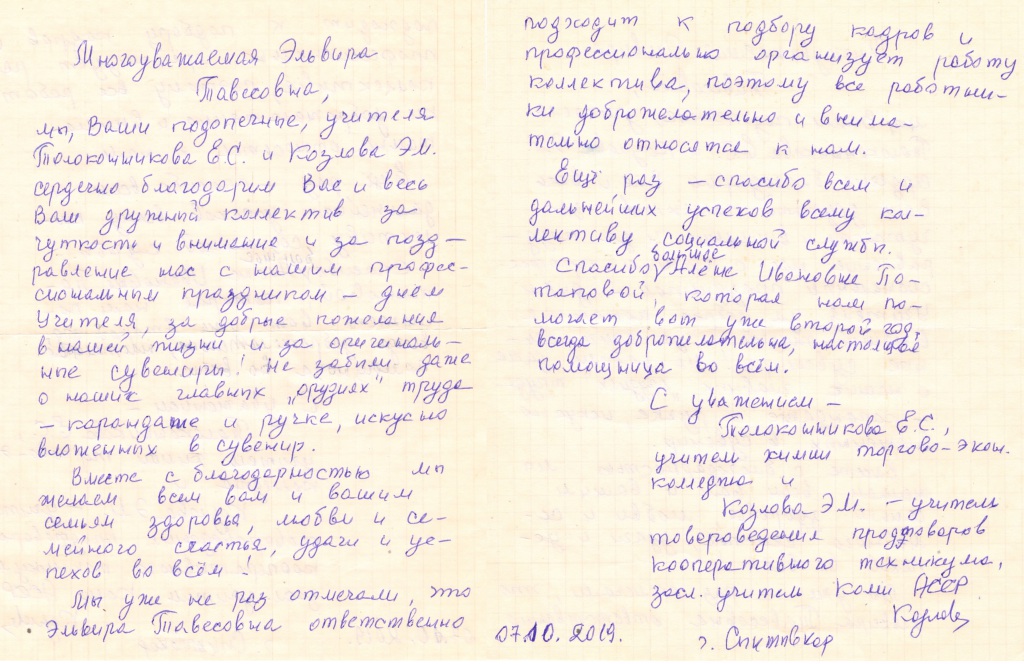 Многоуважаемая Эльвира
Тавесовна,
мы, Ваши подопечные, учителя
Толокошникова Е.С. и Козлова Э.М.
сердечно благодарим Вас и весь
Ваш дружный коллектив за
чуткость и внимание и за позд-
равление нас с нашим профес-
сиональным праздником – днём
Учителя, за добрые пожелания
в нашей жизни и за оригиналь-
ные сувениры! Не забыли даже
о наших главных „орудиях" труда
– карандаше и ручке, искусно
вложенных в сувенир.
Вместе с благодарностью мы
желаем всем вам и вашим
семьям здоровья, любви и се-
мейного счастья, удачи и ус-
пехов во всём!
Мы уже не раз отмечали, что
Эльвира Тавесовна ответственно
подходит к подбору кадров и
профессионально организует работу
коллектива, поэтому все работни-
ки доброжелательно и внима-
тельно относятся к нам.
Ещё раз – спасибо всем и
дальнейших успехов всему кол-
лективу социальной службы.
Спасибо большое Алёне Ивановне По-
таповой, которая нам по-
могает вот уже второй год,
всегда доброжелательна, настоящая
помощница во всём.
С уважением –
Толокошникова Е.С.,
учитель химии торгово-экон.
колледжа и
Козлова Э.М. – учитель
товароведения продтоваров
кооперативного техникума,
засл. учитель Коми АССР
Козлова
07.10.2019.
г. Сыктывкар